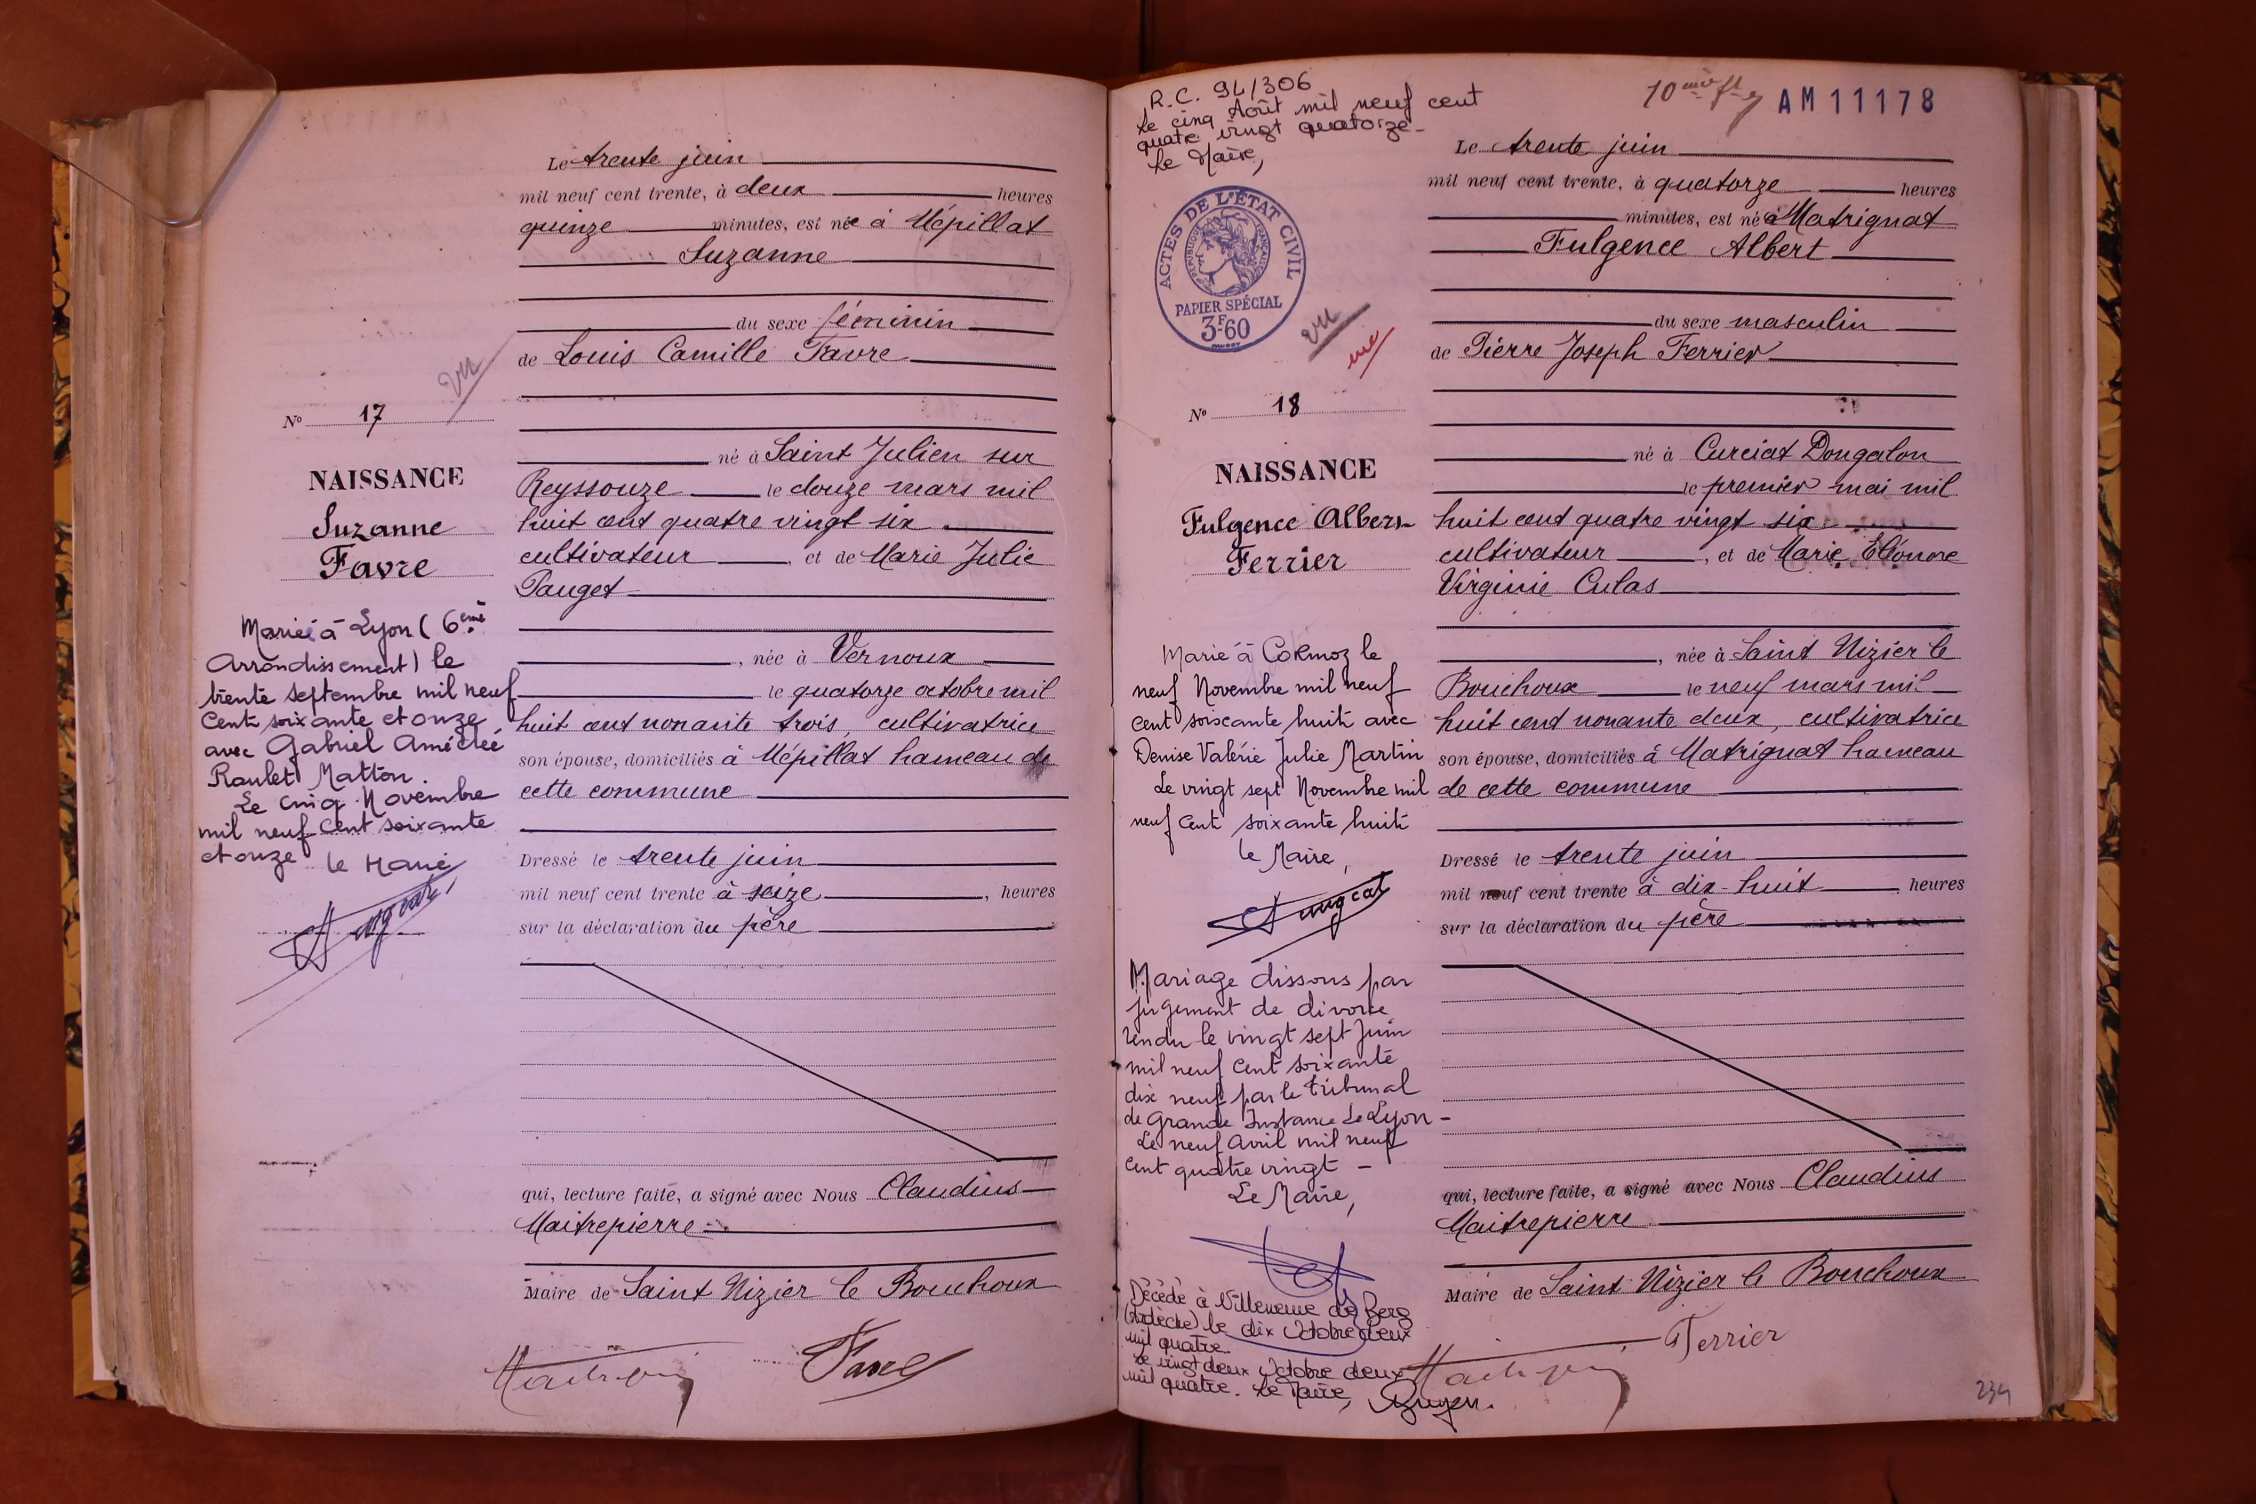 Le trente juin
mil neuf cent trente, à deux heures
quinze minutes, est née à Mépillat
Suzanne
du sexe féminin
de Louis Camille Favre
vu
N° 17
né à Saint Julien sur
NAISSANCE
Reyssouze le douze mars mil
Suzanne
huit cent quatre vingt six
Favre
cultivateur, et de Marie Julie
Pauget
Mariée à Lyon (6eme
arrondissement) le
trente septembre mil neuf
cent soixante et onze
avec Gabriel Amédée
Raulet Matton.
Le cinq Novembre
mil neuf cent soixante
et onze le Maire
, née à Vernoux
le quatorze octobre mil
huit cent nonante trois, cultivatrice
son épouse, domiciliés à Mépillat hameau de
cette commune
Dressé le trente juin
mil neuf cent trente à seize, heures
sur la déclaration du père
qui, lecture faite, a signé avec Nous Claudius
Maitrepierre
Maire de Saint Nizier le Bouchoux
Favre
R.C. 94/306
Le cinq Août mil neuf cent
quatre vingt quatorze -
Le Maire,
AM 11178
Le trente juin
mil neuf cent trente, à quatorze heures
minutes, est né à Matrignat
Fulgence Albert
ACTES DE L'ÉTAT CIVIL
RÉPUBLIQUE FRANÇAISE
PAPIER SPÉCIAL
3F60
vu
du sexe masculin
de Pierre Joseph Ferrier
N° 18
né à Curciat Dongalon
NAISSANCE
le premier mai mil
Fulgence Albert
huit cent quatre vingt six
Ferrier
cultivateur, et de Marie Eléonore
Virginie Culas
Marié à Cormoz le
neuf Novembre mil neuf
cent soixante huit avec
Denise Valérie Julie Martin
Le vingt sept Novembre mil
neuf cent soixante huit
le Maire,
Mariage dissous par
jugement de divorce
rendu le vingt sept Juin
mil neuf cent soixante
dix neuf par le tribunal
de Grande Instance de Lyon -
Le neuf Avril mil neuf
cent quatre vingt -
Le Maire,
Décédé à Villeneuve de Berg
(Ardèche) le dix Octobre deux
mil quatre.
Le vingt deux Octobre deux
mil quatre. Le Maire,
, née à Saint Nizier le
Bouchoux le neuf mars mil
huit cent nonante deux, cultivatrice
son épouse, domiciliés à Matrignat hameau
de cette commune
Dressé le trente juin
mil neuf cent trente à dix-huit, heures
sur la déclaration du père
qui, lecture faite, a signé avec Nous Claudius
Maitrepierre
Maire de Saint Nizier le Bouchoux
Ferrier
234